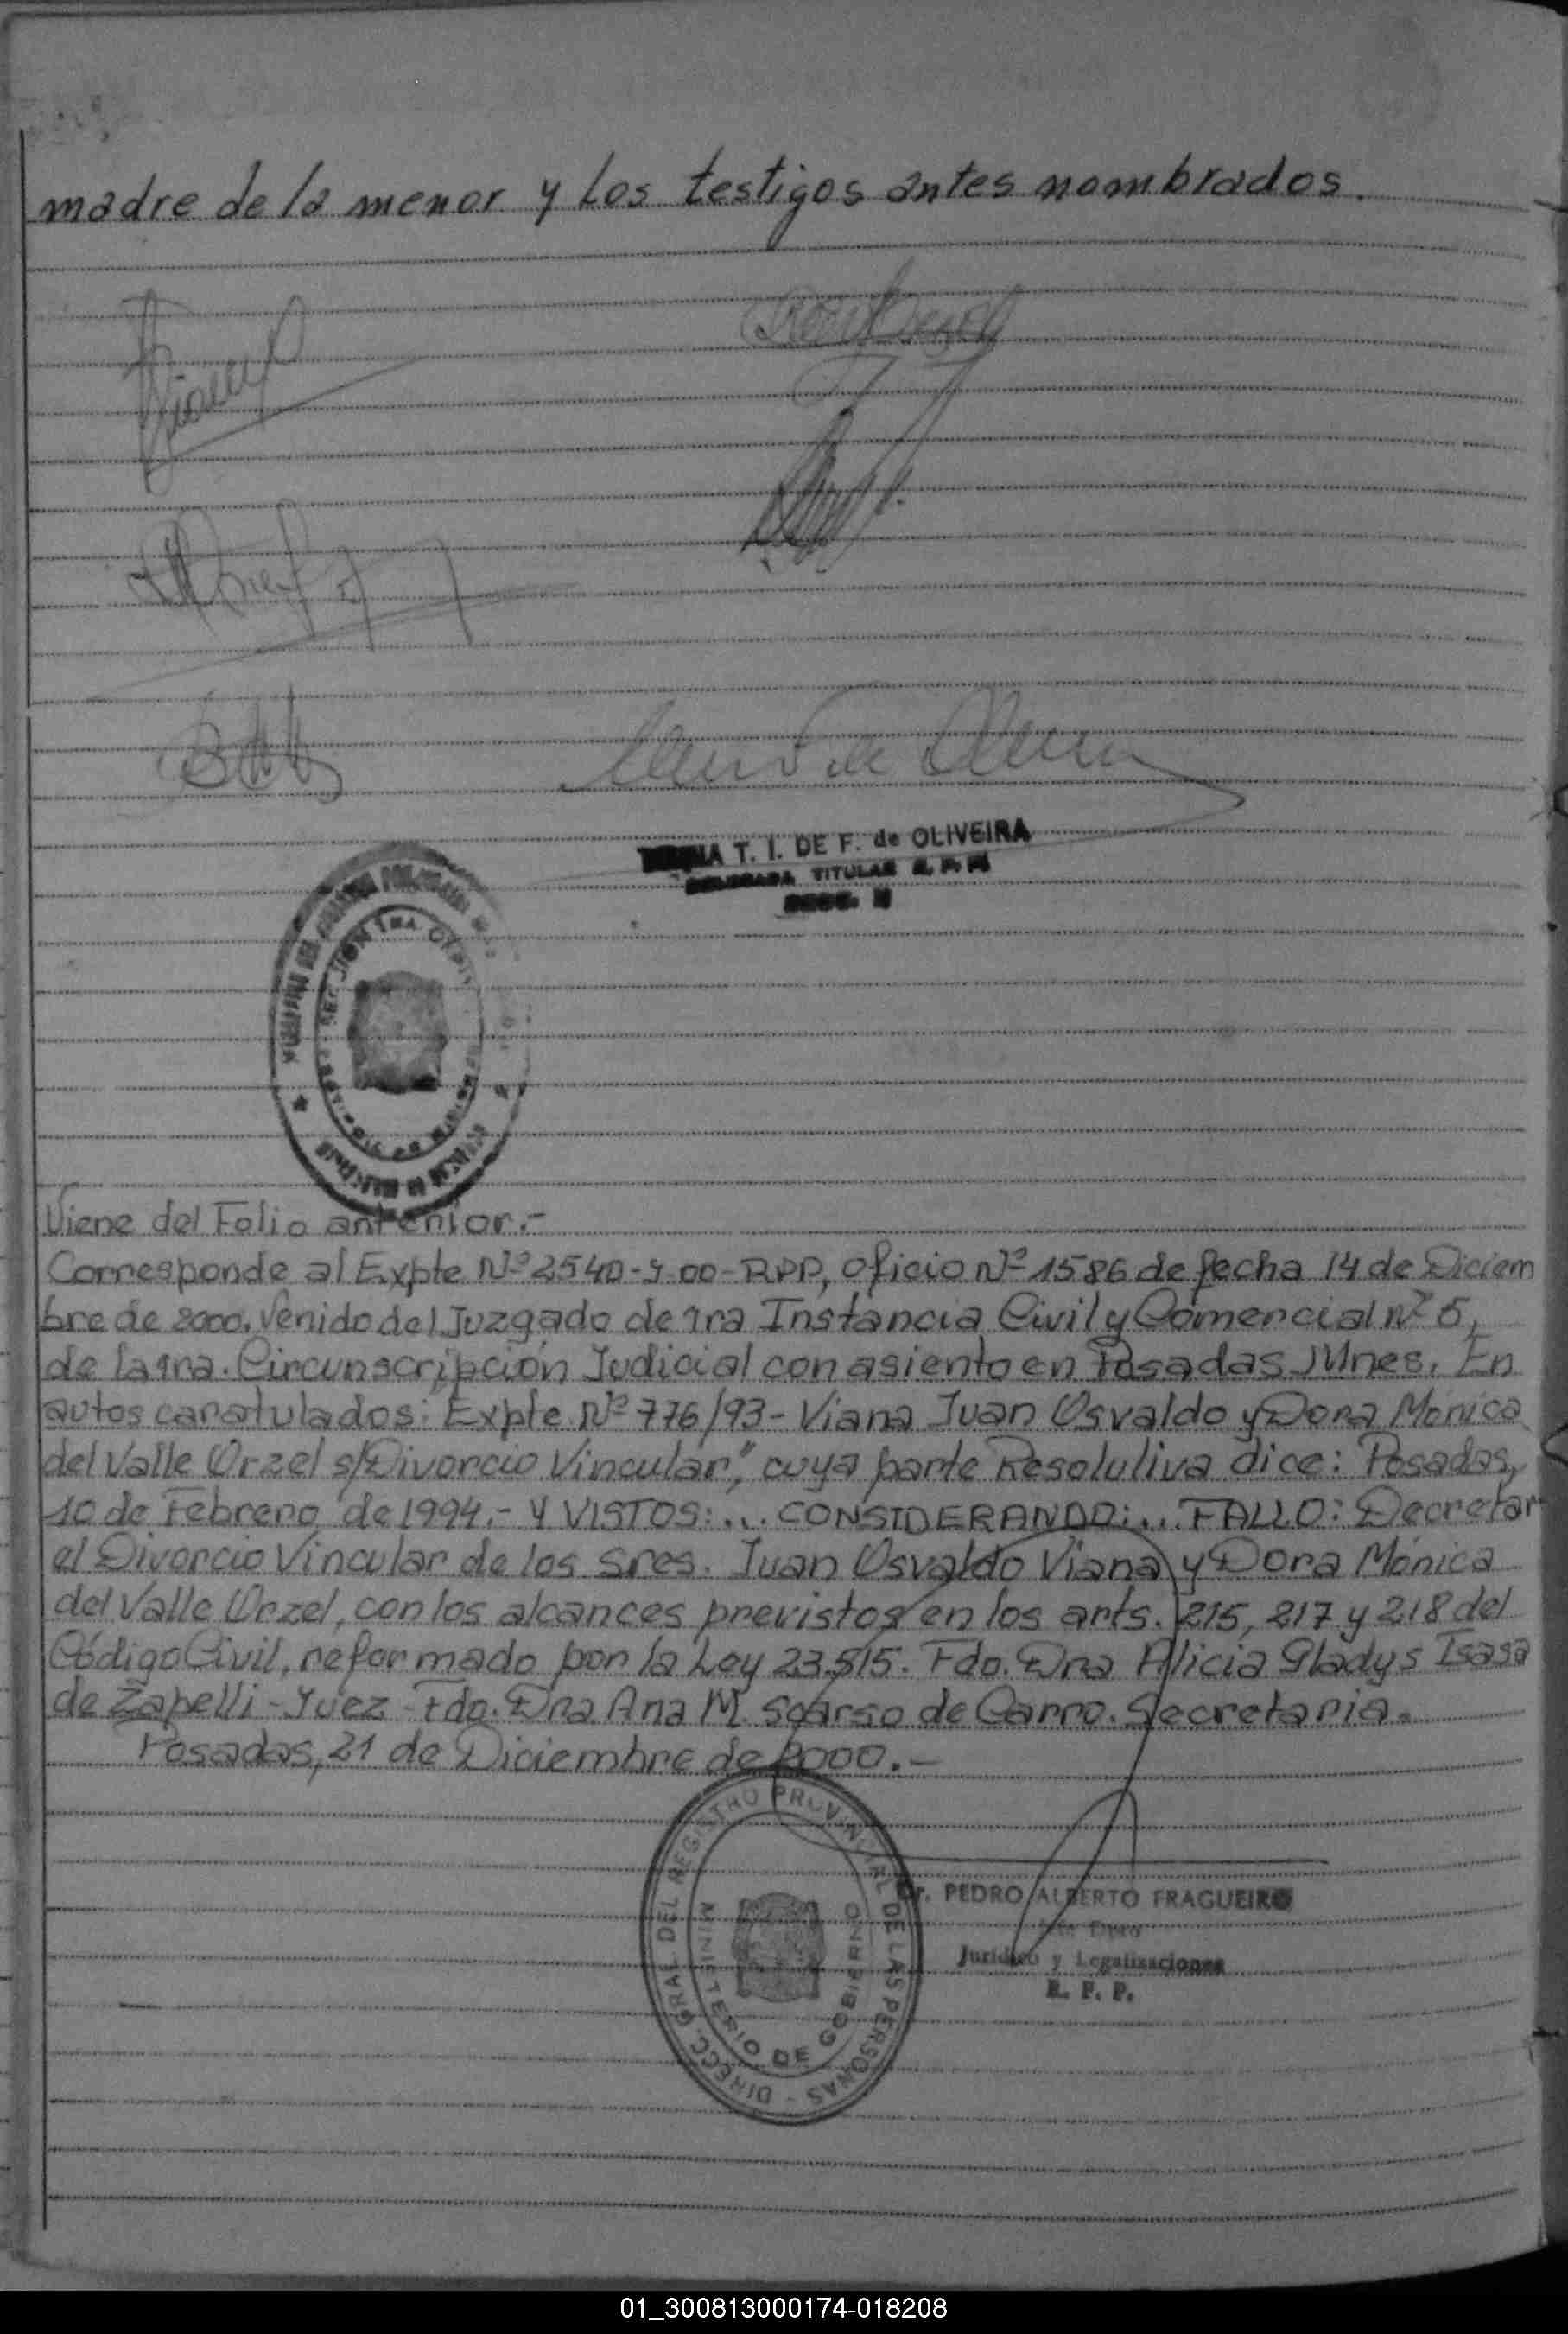 madre de la menor y los testigos antes nombrados.
T. I. DE F. de OLIVEIRA
TITULAR
Viene del Folio anterior.-
Corresponde al Expte Nº 2540-y-00-RPP, oficio Nº 1586 de fecha 14 de Diciem
bre de 2000. Venido del Juzgado de 1ra Instancia Civil y Comercial Nº 5,
de la 1ra. Circunscripción Judicial con asiento en Posadas Mnes. En
autos caratulados: Expte Nº 776/93 - Viana Juan Osvaldo y Dora Mónica
del Valle Orzel s/Divorcio Vincular", cuya parte Resolutiva dice: Posadas,
10 de Febrero de 1994.- Y VISTOS:... CONSIDERANDO:... FALLO: Decretar
el Divorcio Vincular de los Sres. Juan Osvaldo Viana y Dora Mónica
del Valle Orzel, con los alcances previstos en los arts. 215, 217 y 218 del
Código Civil, reformado por la Ley 23.515. Fdo. Dra Alicia Gladys Isasa
de Zapelli - Juez - Fdo. Dra Ana M. Scarso de Carro. Secretaria.
Posadas, 21 de Diciembre de 2000.-
DIRECC. GRAL. DEL REGISTRO PROVINCIAL DE LAS PERSONAS -
MINISTERIO DE GOBIERNO
Dr. PEDRO ALBERTO FRAGUEIRO
Jurídico y Legalizaciones
R. P. P.
01_300813000174-018208